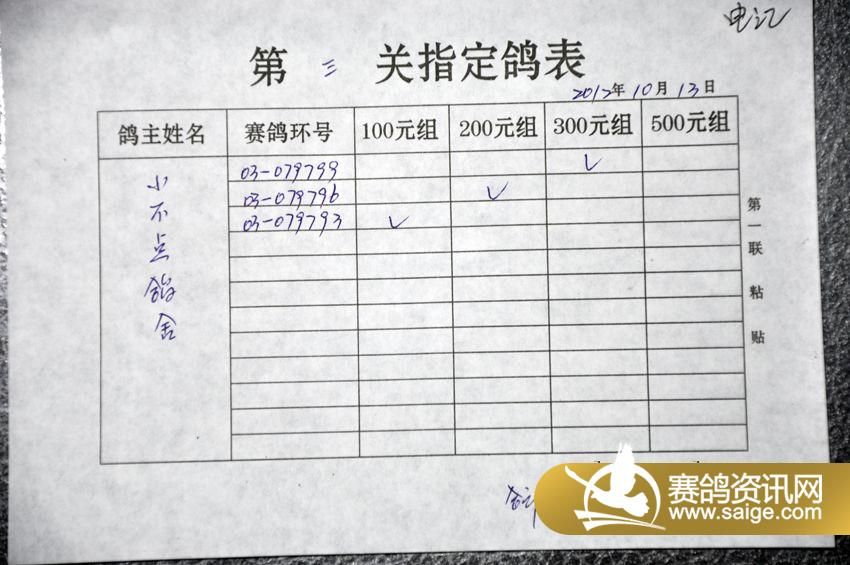 电汇
第 三 关指定鸽表
2012年10月13日
鸽主姓名 赛鸽环号 100元组 200元组 300元组 500元组
小不点鸽舍
03-079799 ✓
03-079796 ✓
03-079793 ✓
第一联 粘贴
赛鸽资讯网
www.saige.com